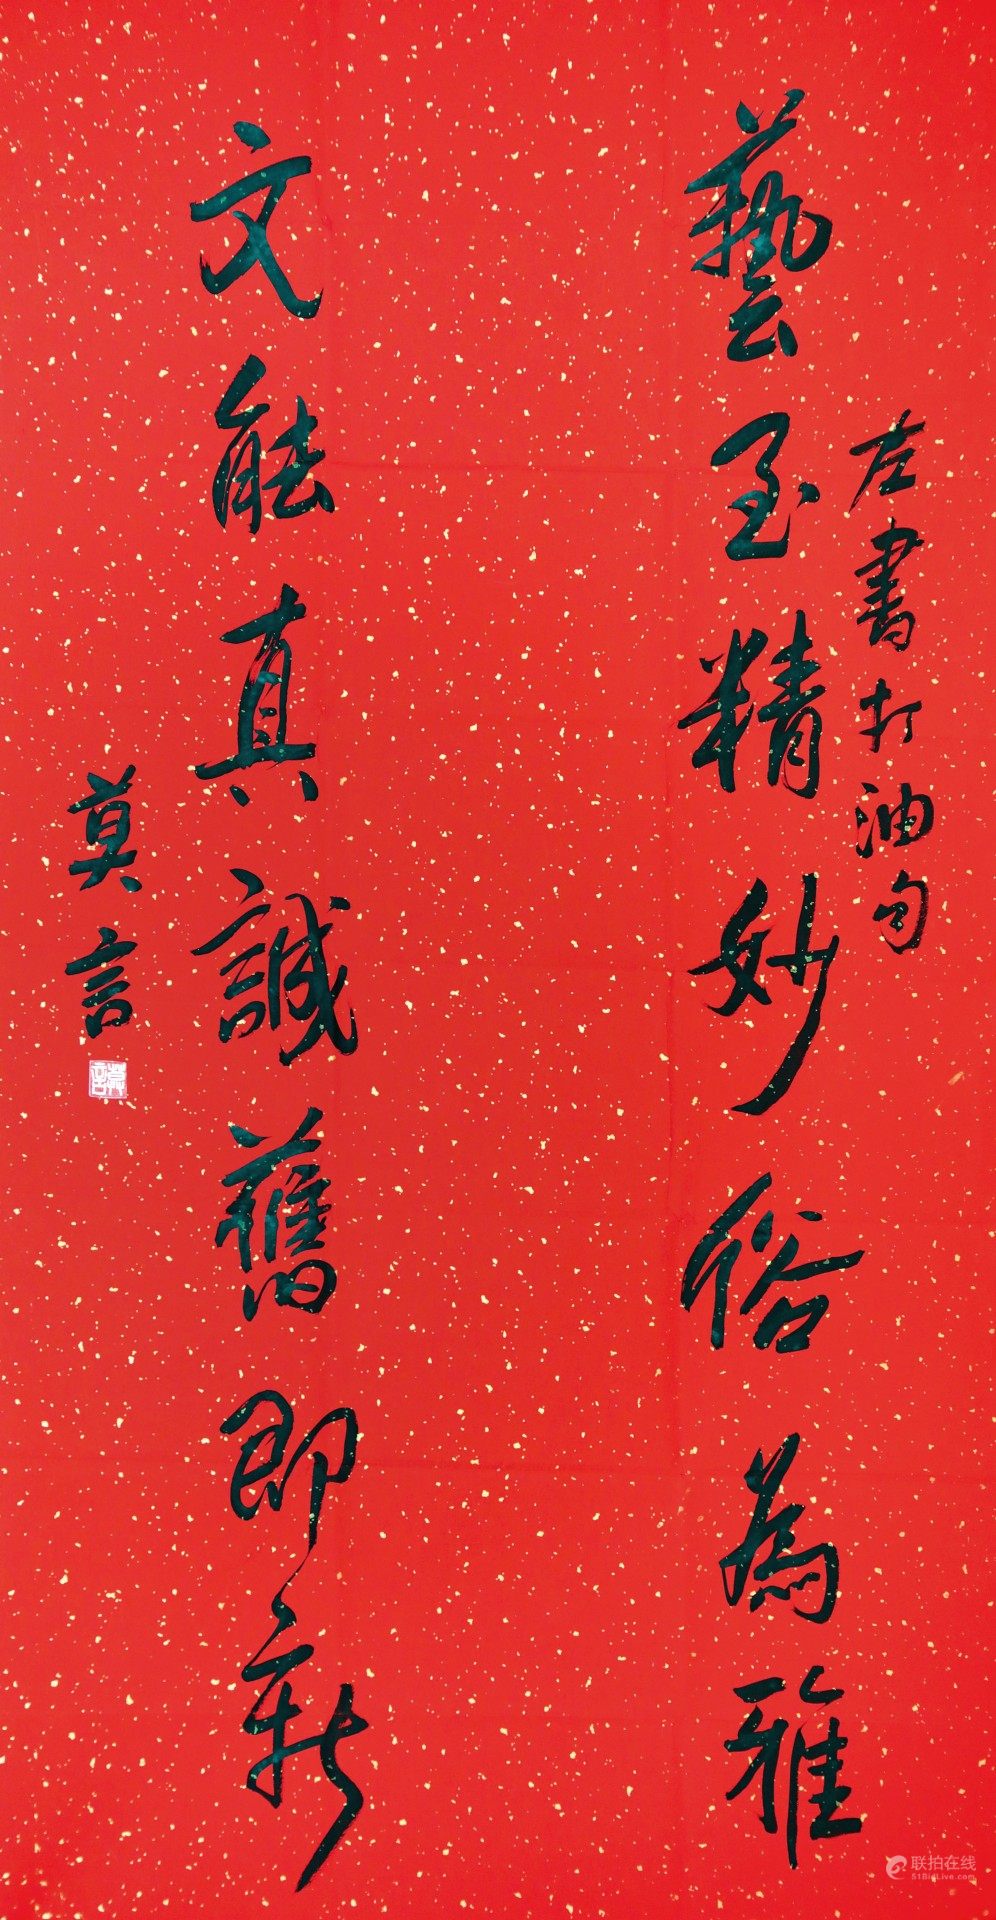 左書打油句
藝至精妙俗為雅
文能真誠舊即新
莫言
莫言
联拍在线
51BidLive.com